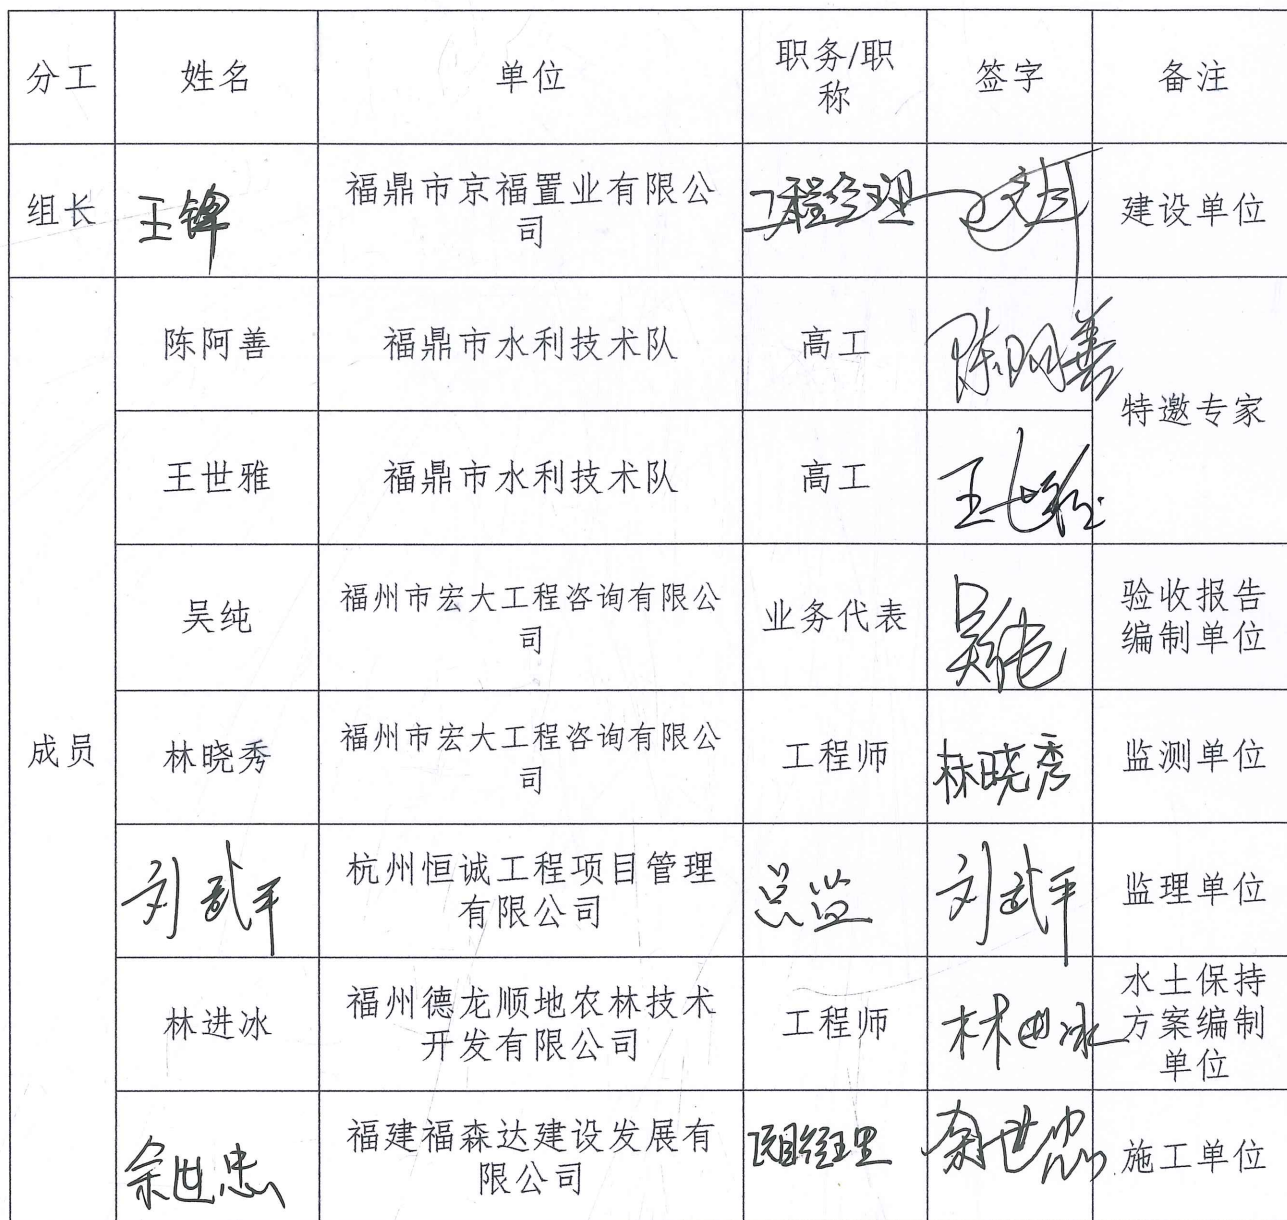 分工 姓名 单位 职务/职 签字 备注
称
组长 王锋 福鼎市京福置业有限公 工程经理 建设单位
司
陈阿善 福鼎市水利技术队 高工 陈阿善
特邀专家
王世雅 福鼎市水利技术队 高工 王世雅
吴纯 福州市宏大工程咨询有限公 业务代表 吴纯 验收报告
司 编制单位
成员 林晓秀 福州市宏大工程咨询有限公 工程师 林晓秀 监测单位
司
刘武平 杭州恒诚工程项目管理 总监 刘武平 监理单位
有限公司
林进冰 福州德龙顺地农林技术 工程师 林进冰 水土保持
开发有限公司 方案编制
单位
余世忠 福建福森达建设发展有 项目经理 余世忠 施工单位
限公司